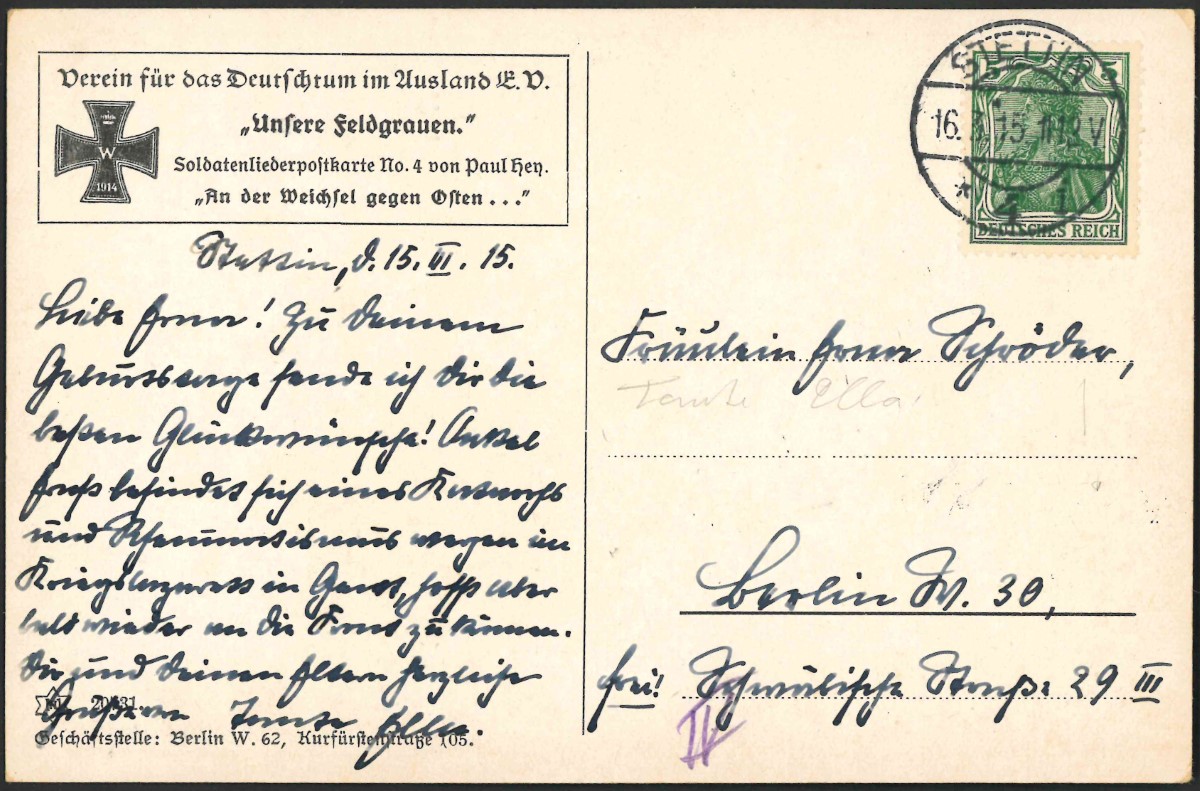 Verein für das Deutschtum im Ausland E. V.
„Unsere Feldgrauen.“
Soldatenliederpostkarte No. 4 von Paul Hey.
„An der Weichsel gegen Osten . . .“
W
1914
Stettin, d. 15. III. 15.
Liebe Erna! Zu Deinem
Geburtstage sende ich Dir die
besten Glückwünsche! Onkel
Ernst befindet sich eines Katarrhs
und Rheumatismus wegen im
Kriegslazarett in Gent, hofft aber
bald wieder an die Front zu können.
Dir und Deinen Eltern herzliche
Grüße von Tante Ella.
Geschäftsstelle: Berlin W. 62, Kurfürstenstraße 105.
STETTIN
16. 15. 11-12 V
* 1
5
DEUTSCHES REICH
Fräulein Erna Schröder,
Tante Ella
Berlin W. 30,
frei! Schwäbische Straße 29 III
IV